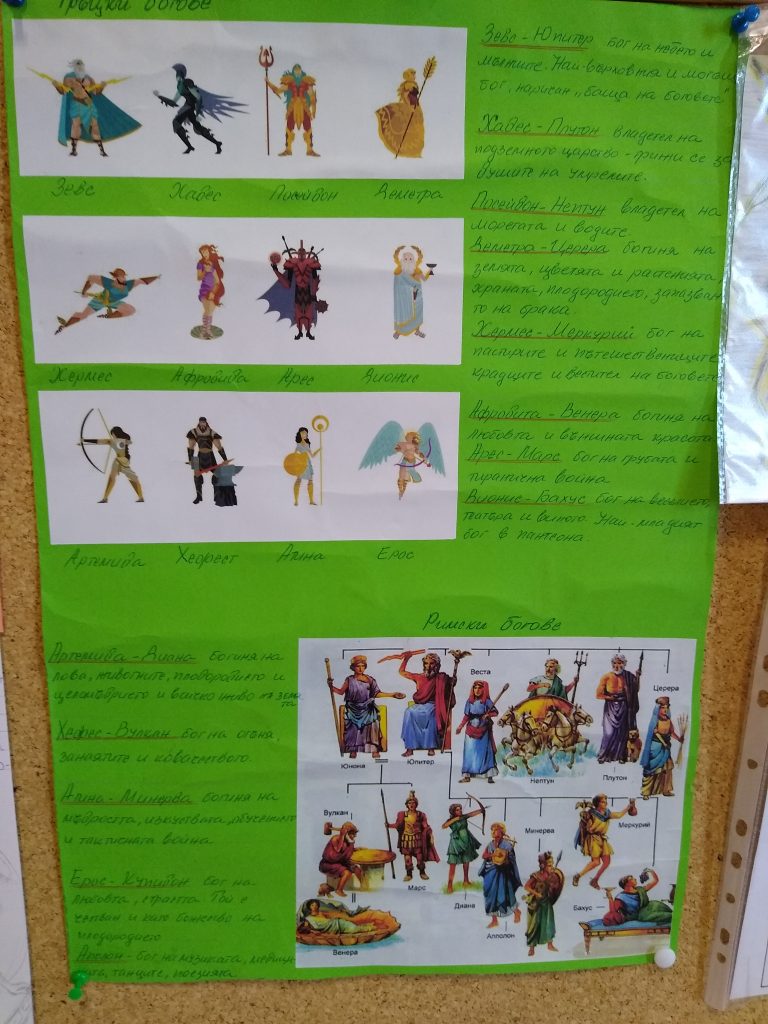 Гръцки богове
Зевс Хадес Посейдон Деметра
Хермес Афродита Арес Дионис
Артемида Хефест Атина Ерос
Зевс - Юпитер бог на небето и
мълниите. Най-върховния и могъщ
бог, наричан „баща на боговете"
Хадес - Плутон владетел на
подземното царство - грижи се за
душите на умрелите.
Посейдон - Нептун владетел на
моретата и водите.
Деметра - Церера богиня на
земята, цветята и растенията,
храната, плодородието, запазван
то на брака.
Хермес - Меркурий бог на
пастирите и пътешествениците
крадците и вестител на боговете
Афродита - Венера богиня на
любовта и външната красота
Арес - Марс бог на грубата и
тиранична война
Дионис - Бахус бог на веселието,
театъра и виното. Най-младият
бог в пантеона.
Артемида - Диана богиня на
лова, животните, плодородието и
целомъдрието и всичко живо на земя
та
Хефес - Вулкан бог на огъня
занаятите и ковачеството.
Атина - Минерва богиня на
мъдростта, изкуствата, обучението
и тактичната война
Ерос - Купидон бог на
любовта, страстта. Той е
считан и като божество на
плодородието
Аполон - бог на музиката, медици
ната, танците, поезията
Римски богове
Юнона Юпитер Веста Нептун Плутон Церера
Вулкан Марс Диана Аполлон Минерва Меркурий
Венера Бахус